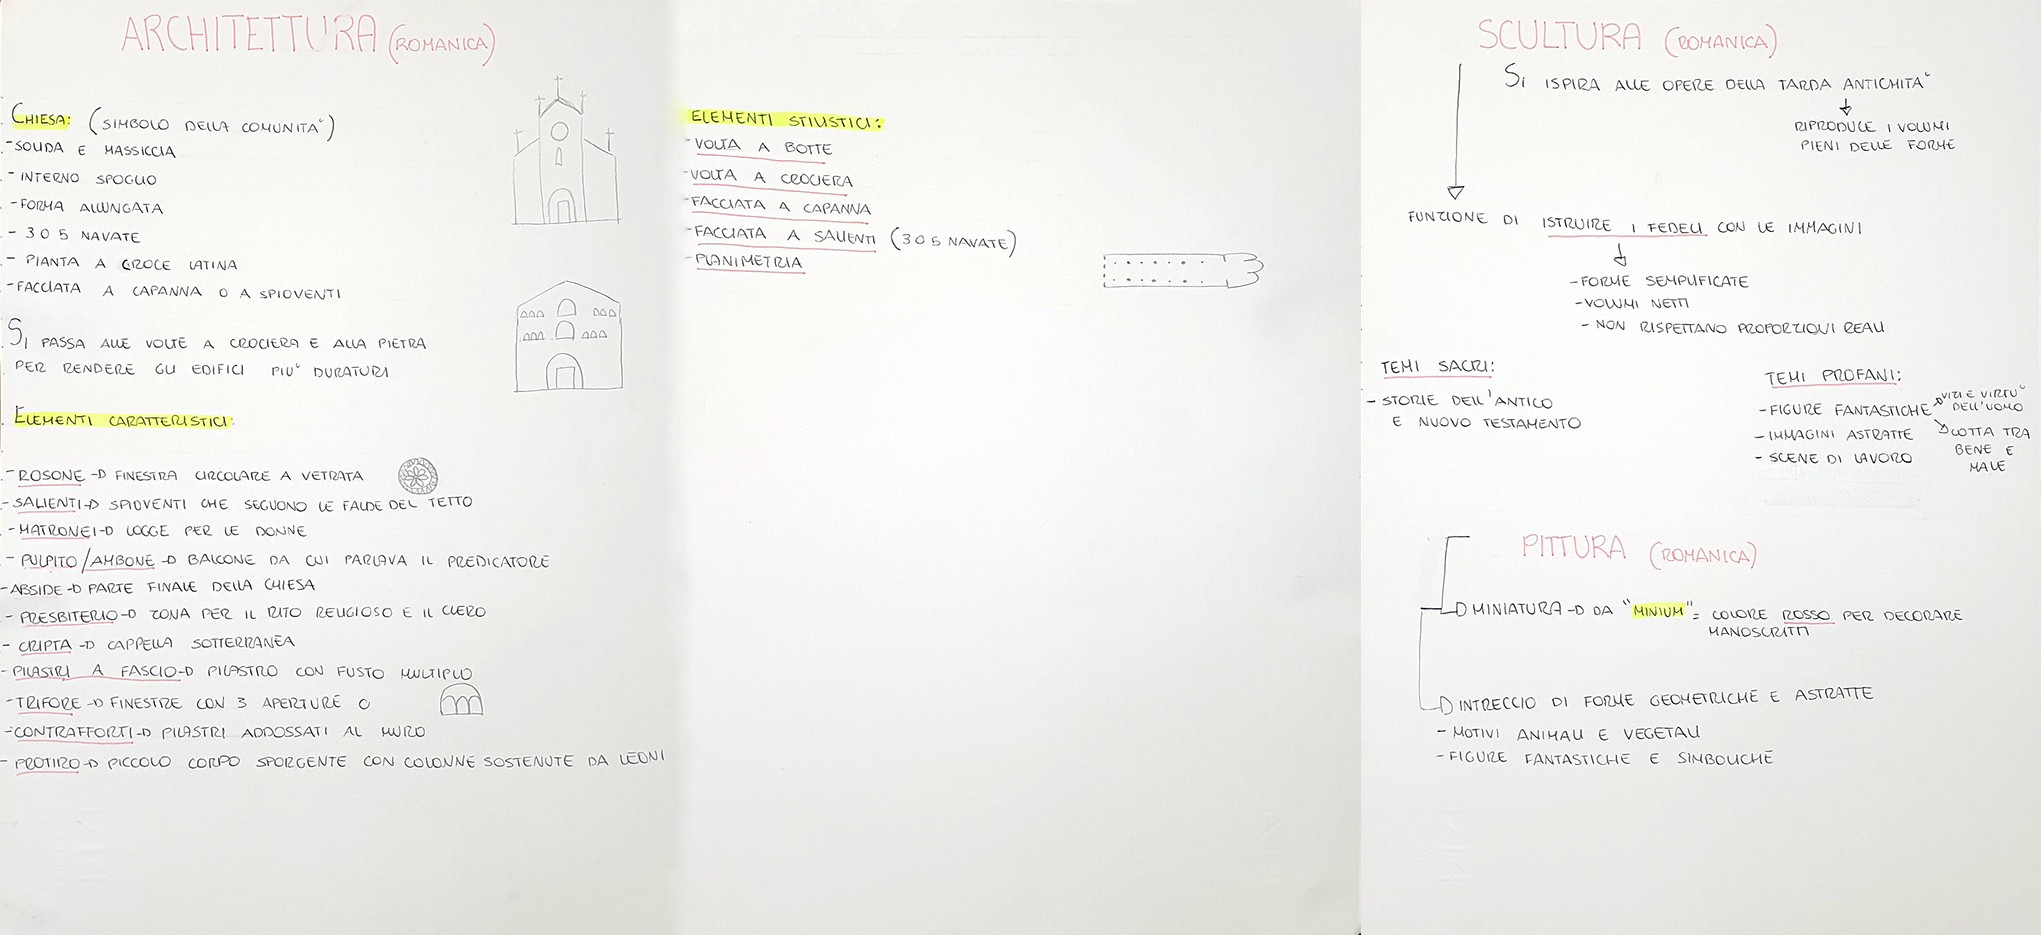 ARCHITETTURA (ROMANICA)
CHIESA: (SIMBOLO DELLA COMUNITA')
-SOLIDA E MASSICCIA
-INTERNO SPOGLIO
-FORMA ALLUNGATA
- 3 O 5 NAVATE
- PIANTA A CROCE LATINA
-FACCIATA A CAPANNA O A SPIOVENTI
SI PASSA ALLE VOLTE A CROCIERA E ALLA PIETRA
PER RENDERE GLI EDIFICI PIU' DURATURI
ELEMENTI CARATTERISTICI:
-ROSONE → FINESTRA CIRCOLARE A VETRATA
-SALIENTI → SPIOVENTI CHE SEGUONO LE FALDE DEL TETTO
-MATRONEI → LOGGE PER LE DONNE
-PULPITO/AMBONE → BALCONE DA CUI PARLAVA IL PREDICATORE
-ABSIDE → PARTE FINALE DELLA CHIESA
-PRESBITERIO → ZONA PER IL RITO RELIGIOSO E IL CLERO
- CRIPTA → CAPPELLA SOTTERRANEA
-PILASTRI A FASCIO → PILASTRO CON FUSTO MULTIPLO
-TRIFORE → FINESTRE CON 3 APERTURE O
-CONTRAFFORTI → PILASTRI ADDOSSATI AL MURO
- PROTIRO → PICCOLO CORPO SPORGENTE CON COLONNE SOSTENUTE DA LEONI
ELEMENTI STILISTICI:
-VOLTA A BOTTE
-VOLTA A CROCIERA
-FACCIATA A CAPANNA
-FACCIATA A SALIENTI (3 O 5 NAVATE)
-PLANIMETRIA
SCULTURA (ROMANICA)
SI ISPIRA ALLE OPERE DELLA TARDA ANTICHITA'
RIPRODUCE I VOLUMI
PIENI DELLE FORME
FUNZIONE DI ISTRUIRE I FEDELI CON LE IMMAGINI
-FORME SEMPLIFICATE
-VOLUMI NETTI
- NON RISPETTANO PROPORZIONI REALI
TEMI SACRI:
- STORIE DELL'ANTICO
E NUOVO TESTAMENTO
TEMI PROFANI:
-FIGURE FANTASTICHE → VIZI E VIRTU'
DELL'UOMO
→ LOTTA TRA
BENE E
MALE
-IMMAGINI ASTRATTE
- SCENE DI LAVORO
PITTURA (ROMANICA)
→ MINIATURA → DA "MINIUM" = COLORE ROSSO PER DECORARE
MANOSCRITTI
→ INTRECCIO DI FORME GEOMETRICHE E ASTRATTE
- MOTIVI ANIMALI E VEGETALI
-FIGURE FANTASTICHE E SIMBOLICHE